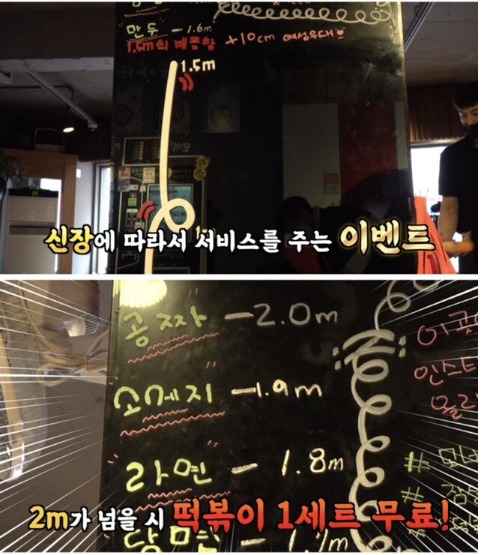 만두 - 1.6m
1.5m의 매콤함 +10cm 여성우대
1.5m
신장에 따라서 서비스를 주는 이벤트
공짜 - 2.0m
소메지 - 1.9m
라면 - 1.8m
2m가 넘을 시 떡볶이 1세트 무료!
당면 -